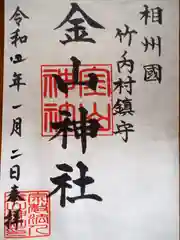 相州國
竹内村鎮守
金山神社
令和四年一月二日奉拝